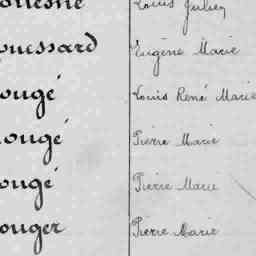 Louis Julien
oussard Eugène Marie
ougé Louis René Marie
ougé Pierre Marie
ougé Pierre Marie
ouger Pierre Marie